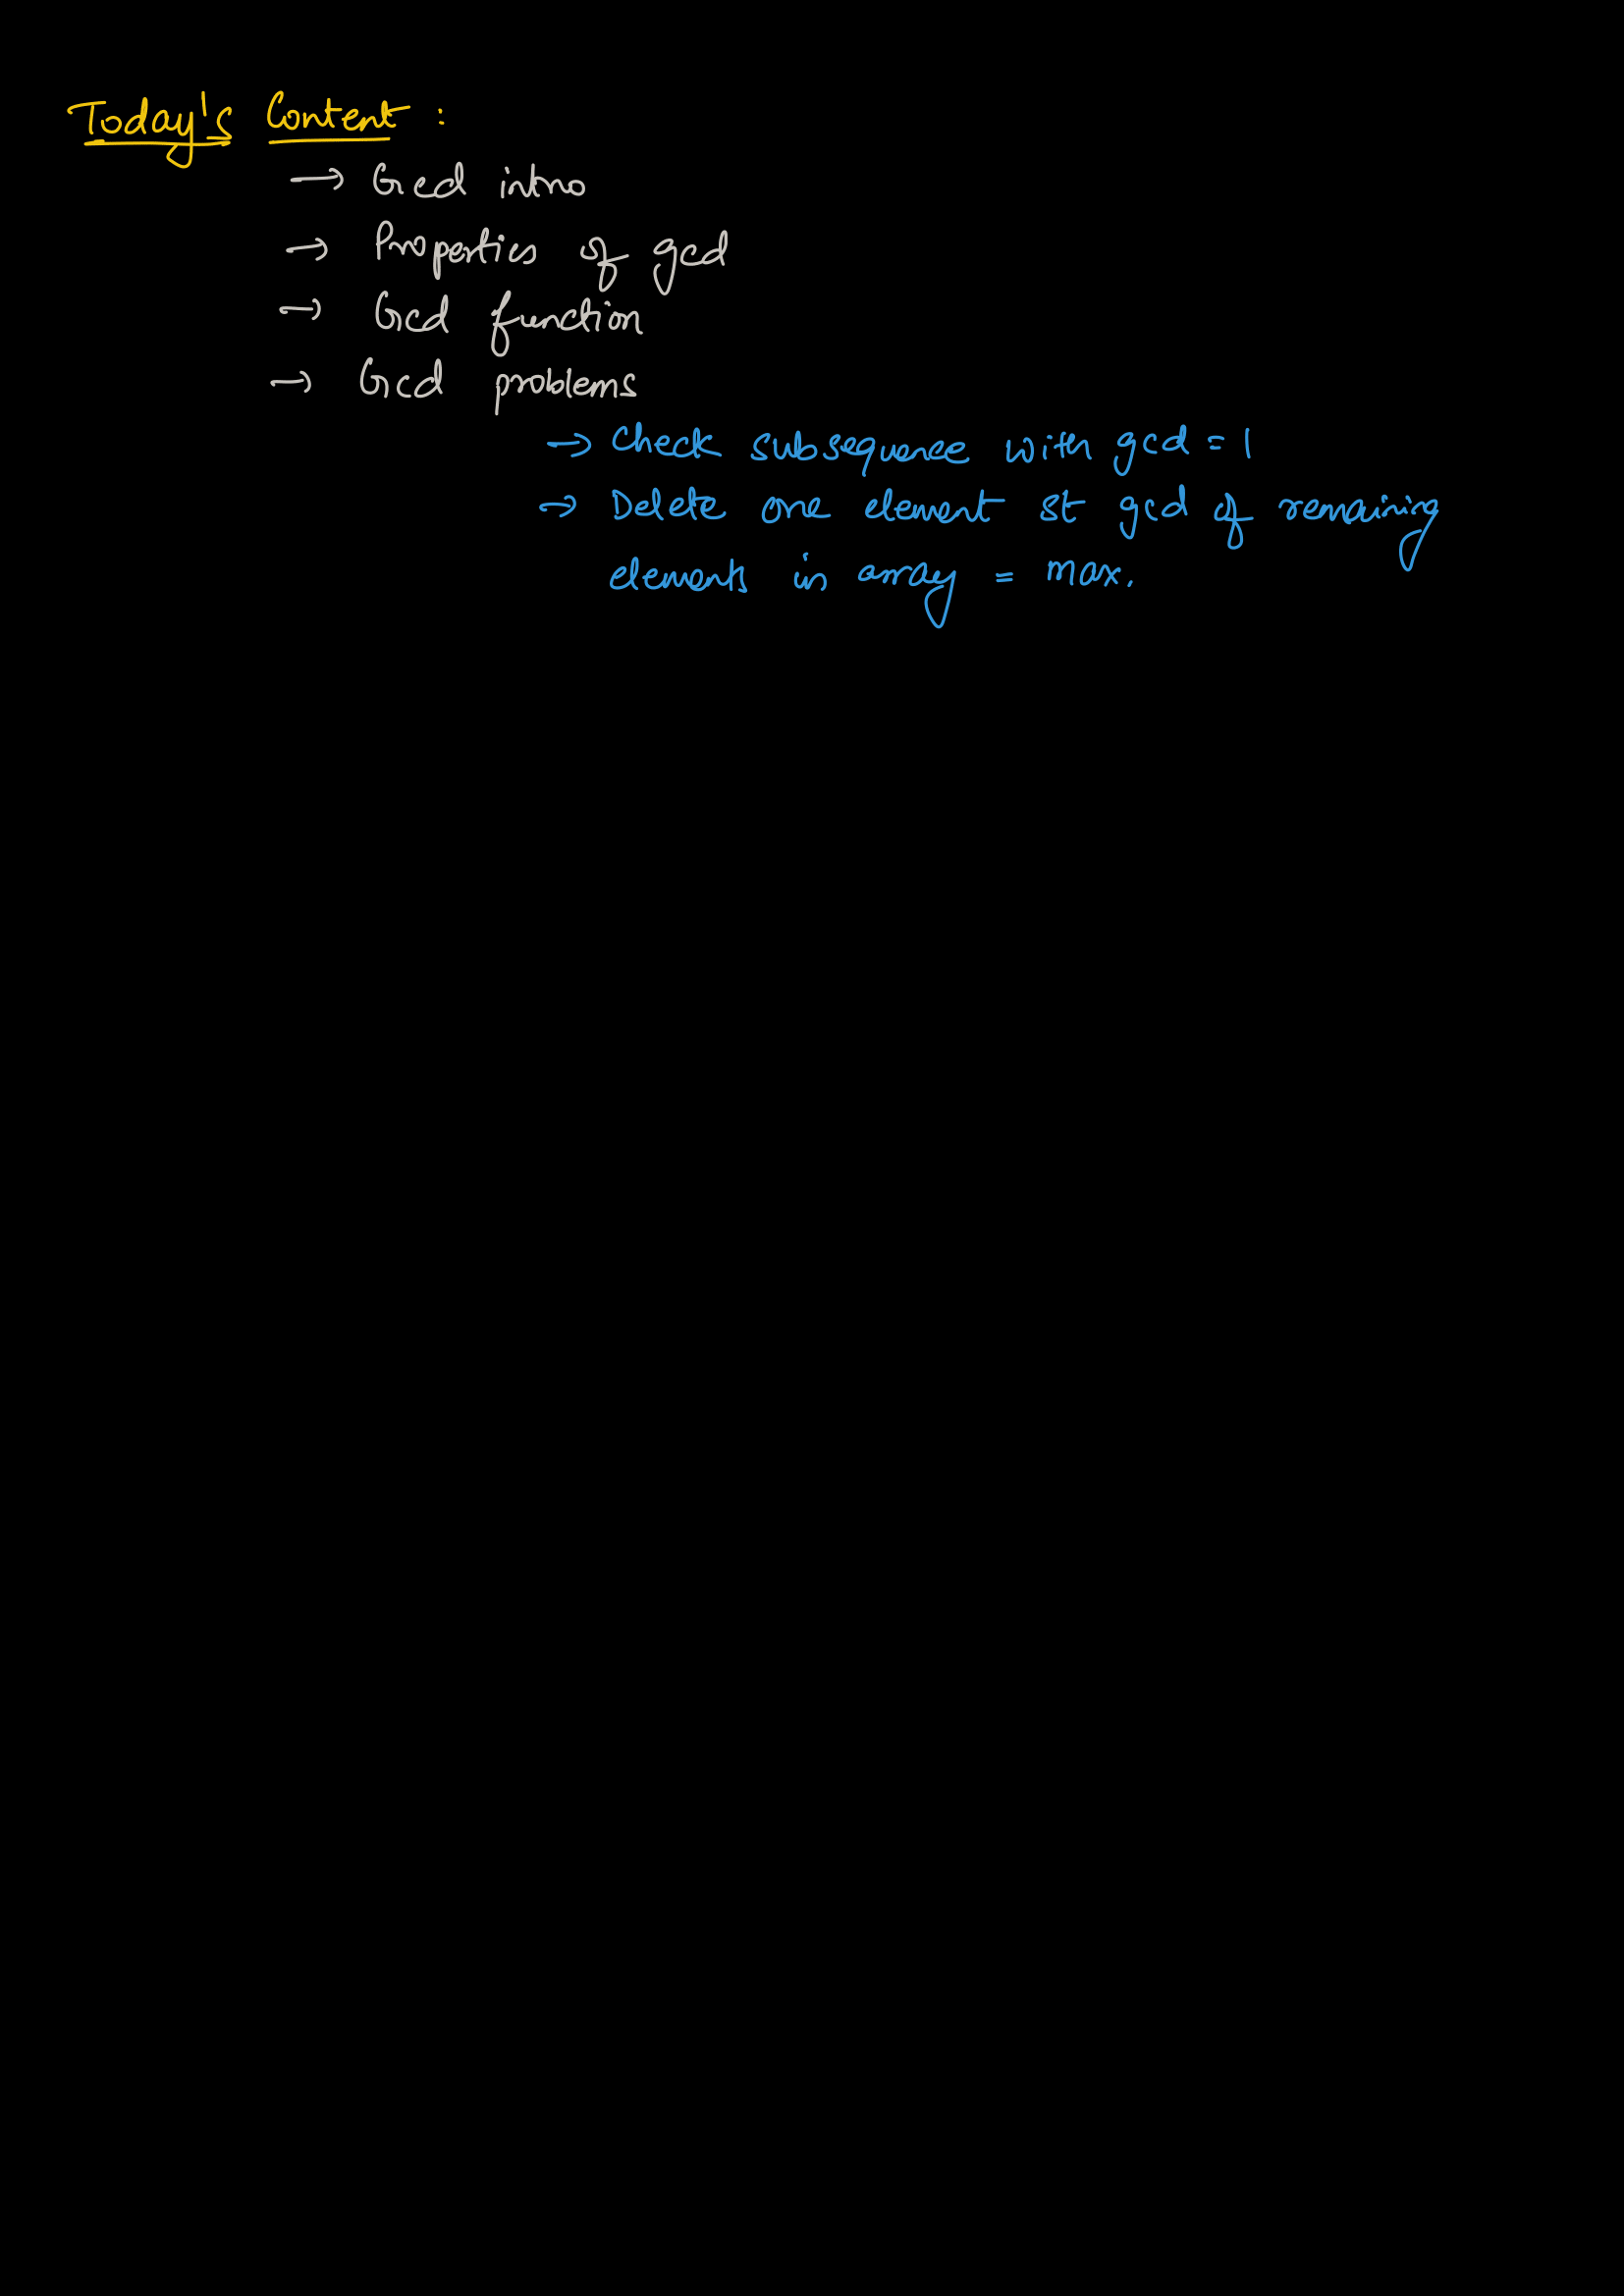 Today's Content :
→ Gcd intro
→ Properties of gcd
→ Gcd function
→ Gcd problems
→ Check subsequence with gcd = 1
→ Delete one element st gcd of remaining
elements in array = max.